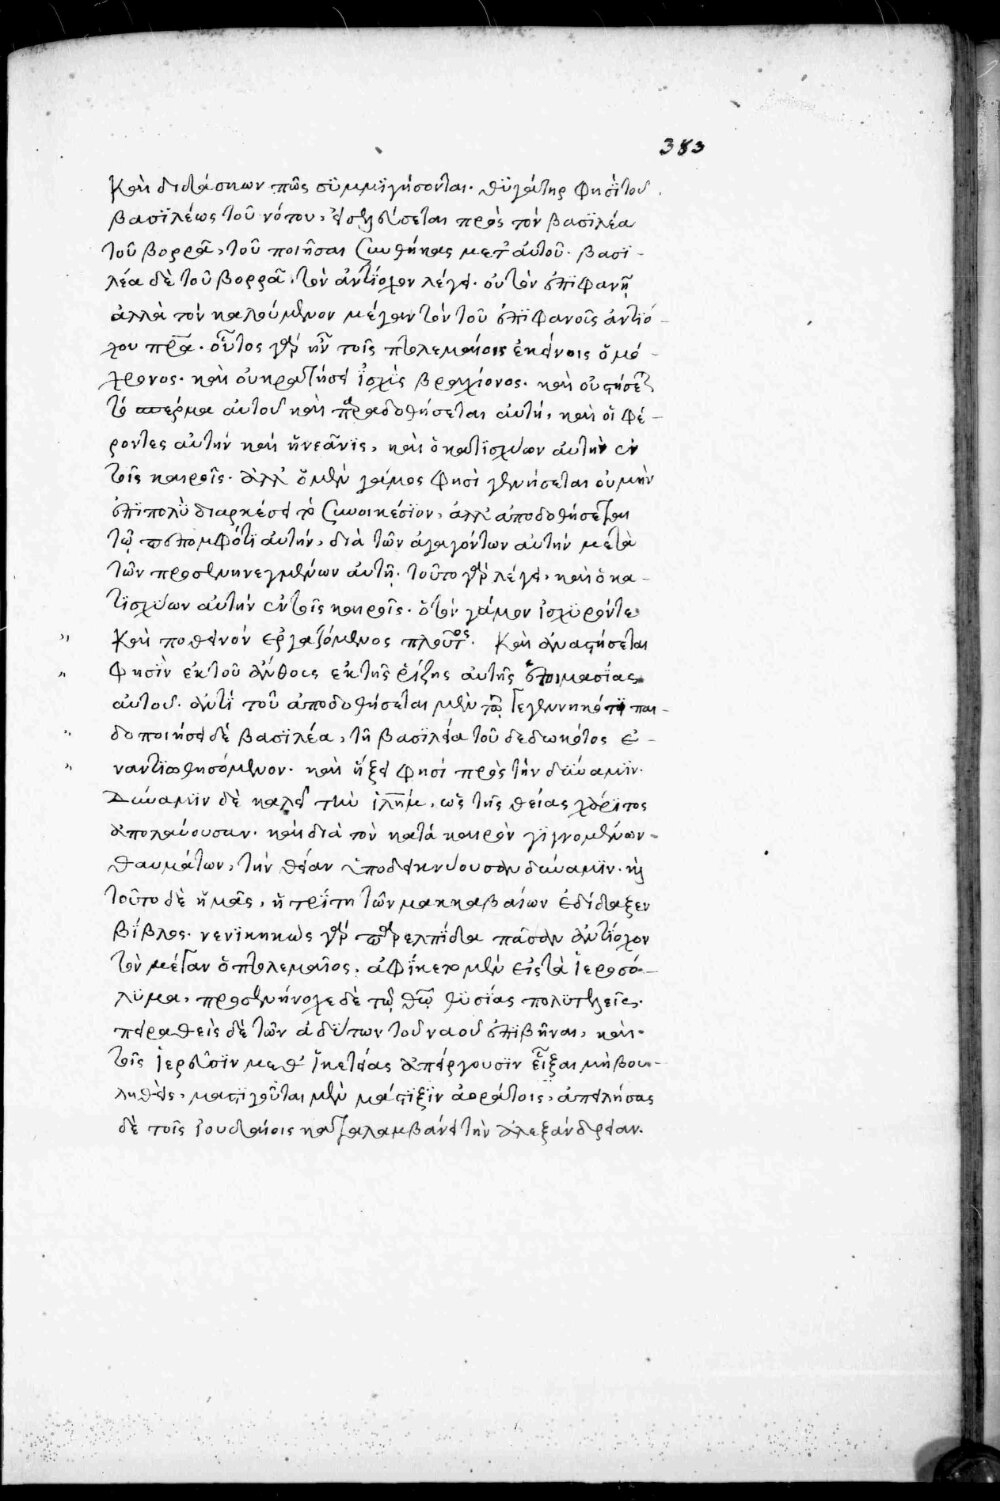 383
Καὶ διδάσκων πῶς συμμιγήσονται· θυγάτηρ φησὶ τοῦ
βασιλέως τοῦ νότου, εἰσελεύσεται πρὸς τὸν βασιλέα
τοῦ βορρᾶ, τοῦ ποιῆσαι συνθήκας μετ' αὐτοῦ· βασι-
λέα δὲ τοῦ βορρᾶ, τὸν ἀντίοχον λέγει· οὐ τὸν ἐπιφανῆ
ἀλλὰ τὸν καλούμενον μέγαν τὸν τοῦ ἐπιφανοῦς ἀντιό-
χου πρα· οὗτος γὰρ ἦν τοῖς πτολεμαίοις ἐκείνοις ὁμό-
χρονος· καὶ οὐ κρατήσει ἰσχὺς βραχίονος· καὶ οὐ στήσεται
τὸ σπέρμα αὐτοῦ καὶ παραδοθήσεται αὐτή, καὶ οἱ φέ-
ροντες αὐτὴν καὶ ἡ νεᾶνις, καὶ ὁ κατισχύων αὐτὴν ἐν
τοῖς καιροῖς· ἀλλ' ὁ μὲν γάμος φησὶ γεννήσεται οὐ μὴν
ἐπιπολὺ διαρκέσει τὸ συνοικέσιον, ἀλλ' ἀποδοθήσεται
τῷ πεπομφότι αὐτὴν, διὰ τῶν ἀγαγόντων αὐτὴν μετὰ
τῶν προσενηνεγμένων αὐτῇ· τοῦτο γὰρ λέγει, καὶ ὁ κα-
τισχύων αὐτὴν ἐν τοῖς καιροῖς· ὁ τὸν γάμον ἰσχυρόν τε
Καὶ ποθεινὸν ἐργαζόμενος πλοῦτος· Καὶ ἀναστήσεται
φησὶν ἐκ τοῦ ἄνθους ἐκ τῆς ῥίζης αὐτῆς ἑτοιμασίας
αὐτοῦ· ἀντὶ τοῦ ἀποδοθήσεται μὲν τῷ γεγεννηκότι παι-
δοποιήσει δὲ βασιλέα, τῇ βασιλείᾳ τοῦ δεδωκότος ἐ-
ναντιωθησόμενον· καὶ ἥξει φησὶ πρὸς τὴν δύναμιν·
Δύναμιν δὲ καλεῖ τὴν ἱλημ, ὡς τῆς θείας χάριτος
ἀπολαύουσαν· καὶ διὰ τὸν κατὰ καιρὸν γιγνομένων
θαυμάτων, τὴν θείαν ὑποδεικνύουσαν δύναμιν· καὶ
τοῦτο δὲ ἡμᾶς, ἡ τρίτη τῶν μακκαβαίων ἐδίδαξεν
βίβλος· νενικηκὼς γὰρ παρ' ἐλπίδα πᾶσαν ἀντίοχον
τὸν μέγαν ὁ πτολεμαῖος· ἀφίκετο μὲν εἰς τὰ ἱεροσό-
λυμα, προσενήνοχε δὲ τῷ θῷ θυσίας πολυτελεῖς·
πειραθεὶς δὲ τῶν ἀδύτων τοῦ ναοῦ ἐπιβῆναι, καὶ
τοῖς ἱερεῦσιν μεθ' ἱκετείας ἀπείργουσιν εἶξαι μὴ βου-
ληθεὶς, μαστιγοῦται μὲν μάστιξιν ἀοράτοις, ἀπειλήσας
δὲ τοῖς ἰουδαίοις καταλαμβάνει τὴν ἀλεξάνδρειαν.